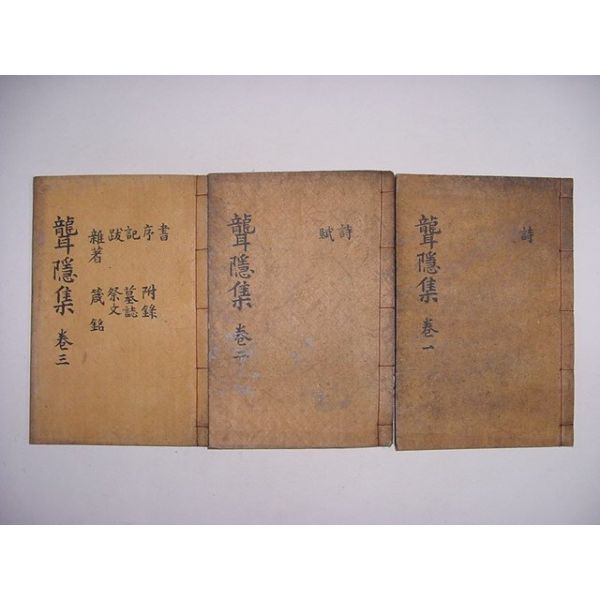 詩
聾隱集 卷一
詩
賦
聾隱集 卷二
書
序 附錄
記 墓誌
跋 祭文
雜著 箴銘
聾隱集 卷三